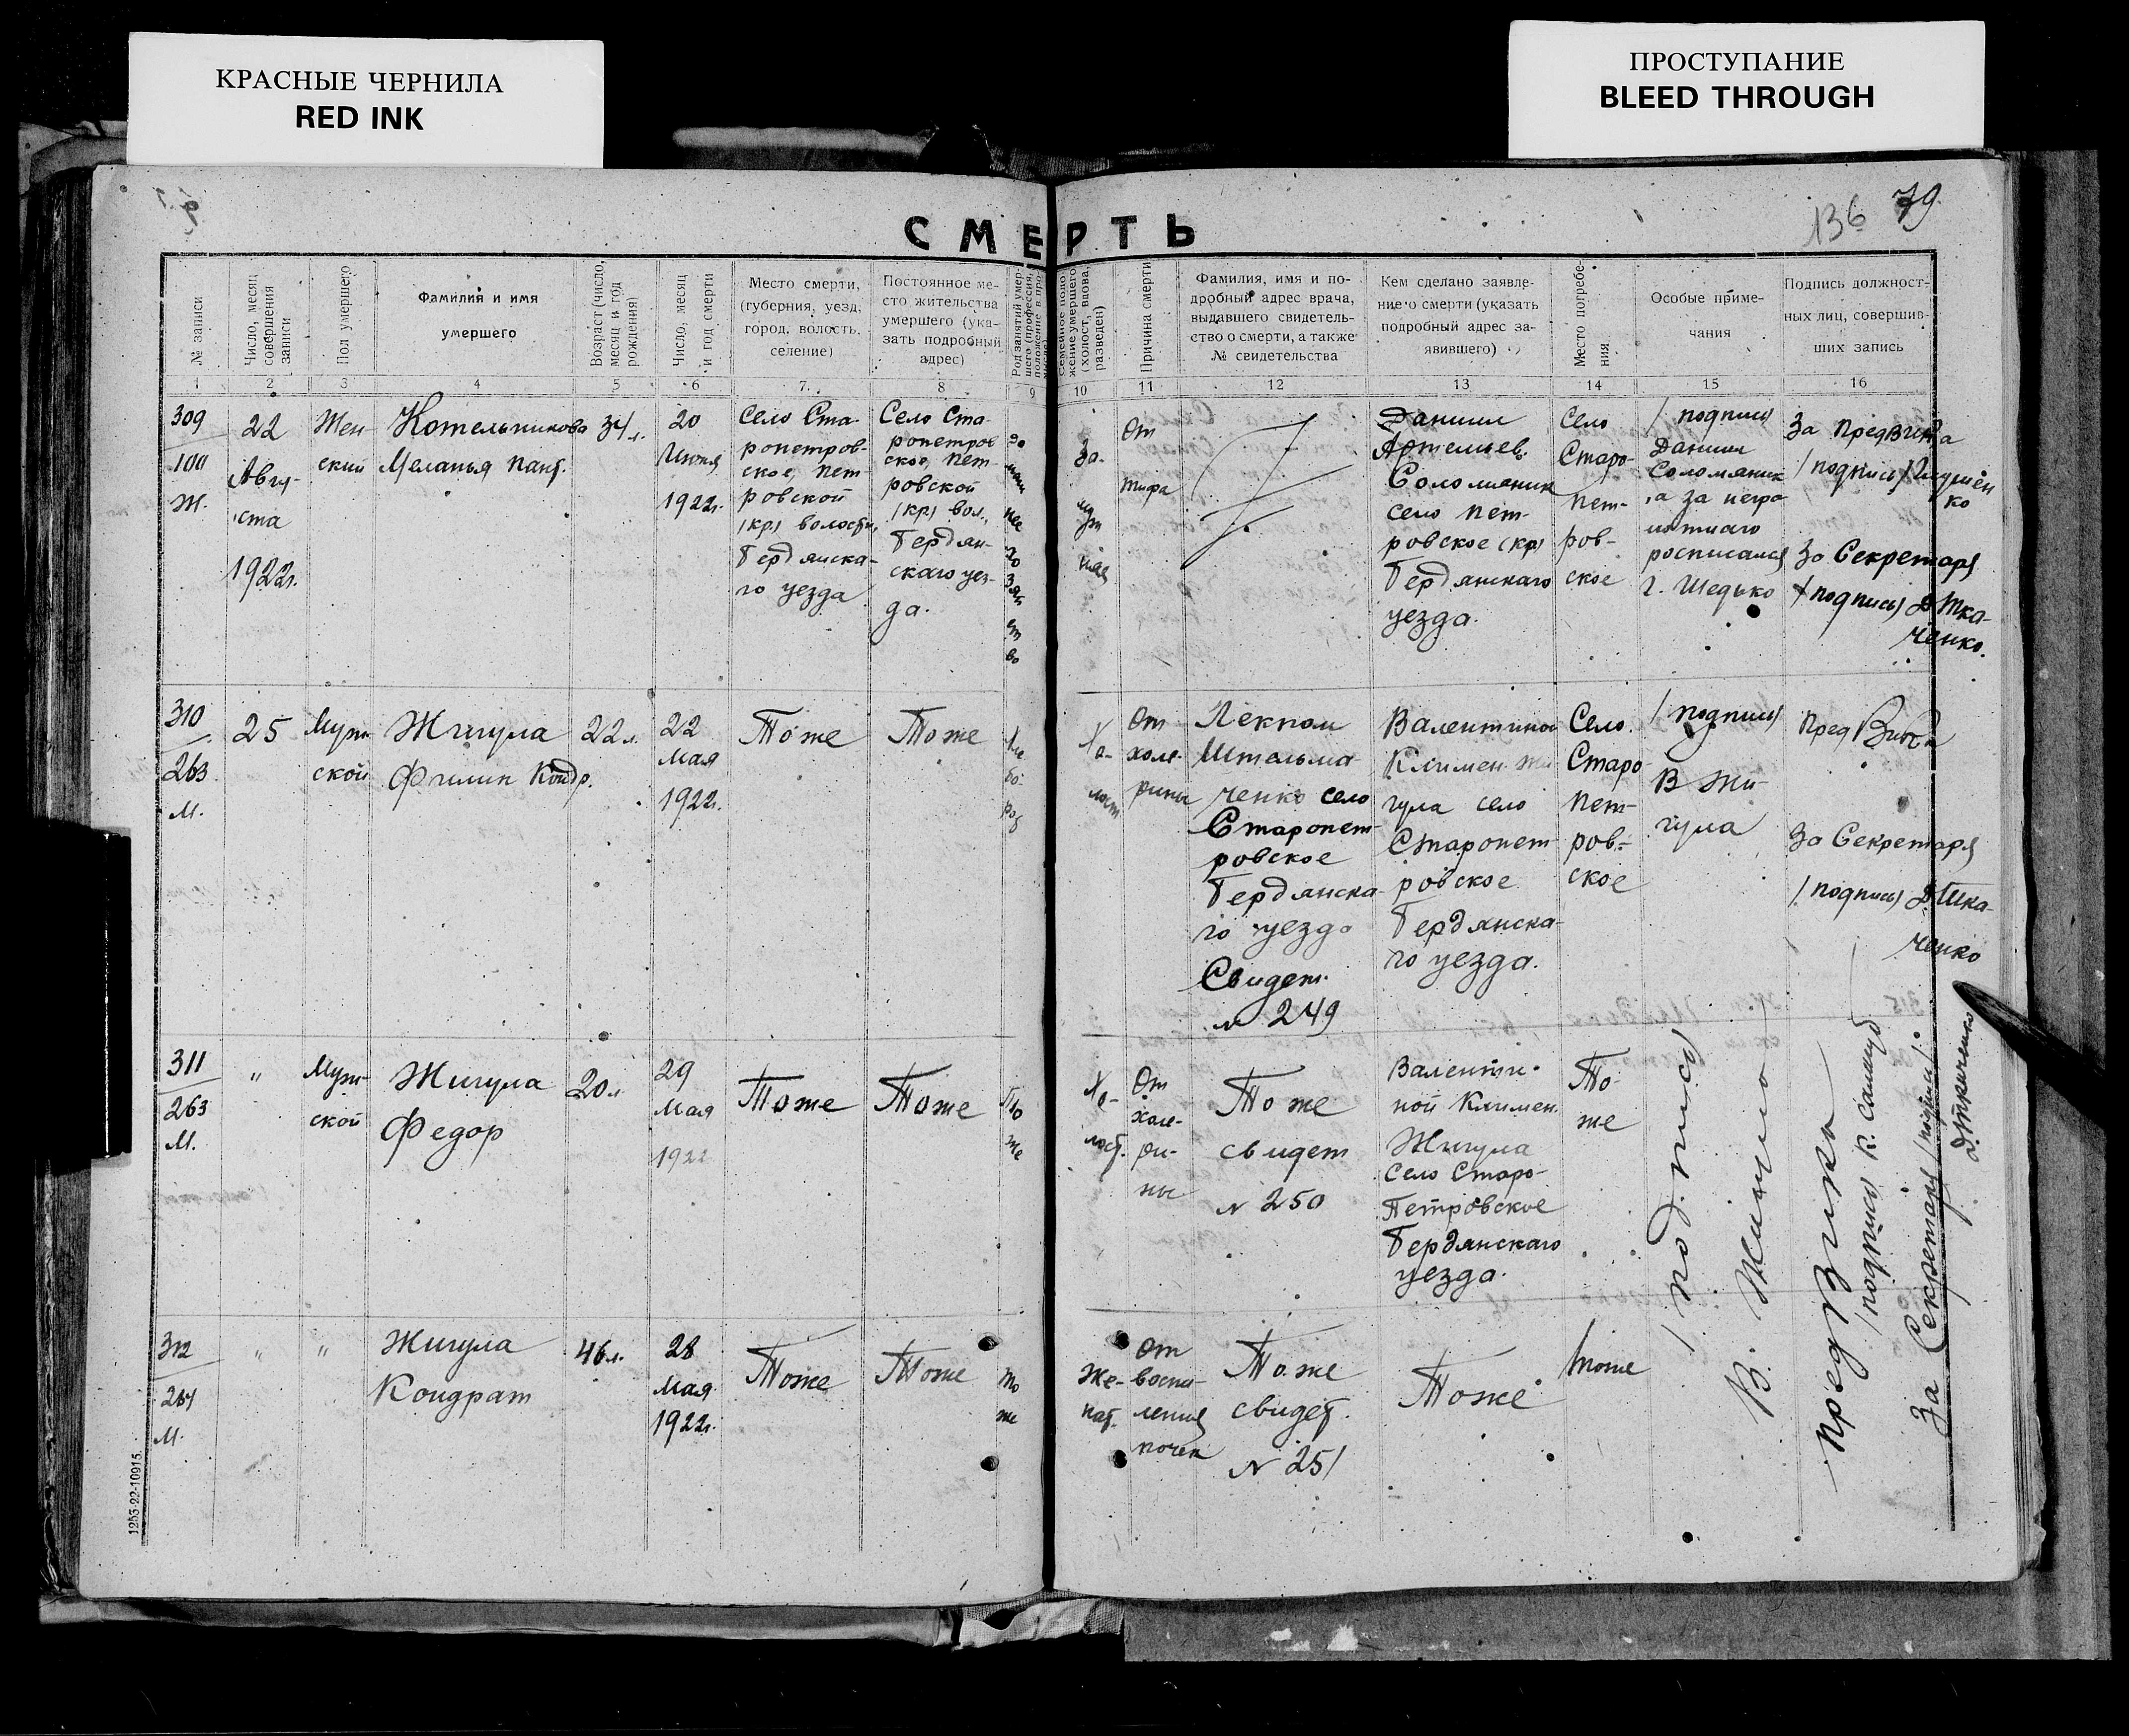 КРАСНЫЕ ЧЕРНИЛА
RED INK
ПРОСТУПАНИЕ
BLEED THROUGH
136 79.
СМЕРТЬ
№ записи
Число, месяц
совершения
записи
Пол умершего
Фамилия и имя
умершего
Возраст (число,
месяц и год
рождения)
Число, месяц
и год смерти
Место смерти,
(губерния, уезд,
город, волость,
селение)
Постоянное ме-
сто жительства
умершего (ука-
зать подробный
адрес)
Род занятий умер-
шего (профессия,
положение в про-
Семейное поло-
жение умершего
(холост, вдова,
разведен)
Причина смерти
Фамилия, имя и по-
дробный адрес врача,
выдавшего свидетель-
ство о смерти, а также
№ свидетельства
Кем сделано заявле-
ние о смерти (указать
подробный адрес за-
явившего)
Место погребе-
ния
Особые приме-
чания
Подпись должност-
ных лиц, совершив-
ших запись
1 2 3 4 5 6 7. 8 9 10 11 12 13 14 15 16
309
100
Ж.
22
Авгу-
ста
1922г.
Жен
ский
Котельникова
Меланья Пант.
34 л.
20
Июня
1922г.
Село Ста-
ропетров-
ское, Пет-
ровской
(кр) волости,
Бердянска-
го уезда
Село Ста-
ропетров
ское, Пет-
ровской
(кр) вол.,
Бердян-
скаго уез-
да.
до
маш
нее
хо
зяй
ст
во
За-
му
жн
няя
От
тифа
Даниил
Артемьев.
Соломяник
село Пет-
ровское (кр)
Бердянскаго
уезда.
Село
Старо-
пет-
ров-
ское
(подпись)
Даниил
Соломяник
, а за негра
мотнаго
росписался
Г. Шедько
За ПредВика
(подпись)
ко
За Секретаря
(подпись) Д Тка-
ченко.
310
263
М.
25
Муж
ской
Жигула
Филип Кондр.
22 л.
22
Мая
1922г.
Тоже
Тоже
Хле
бо-
роб
Хо-
лост
От
холе-
рины
Лекпом
Штельма-
ченко село
Старопет-
ровское
Бердянска-
го уезда
Свидет.
№ 249
Валентиной
Климен. Жи
гула село
Старопет
ровское
Бердянска-
го уезда.
Село.
Старо
пет-
ров-
ское
(подпись)
В Жи-
гула
Пред Вика
За Секретаря
(подпись) Д Тка-
ченко
311
263
М.
"
Муж-
ской
Жигула
Федор
20 л
29
Мая
1922
Тоже
Тоже
То
же
Хо-
лост.
От
холе-
ри-
ны
Тоже
свидет
№ 250
Валенти-
ной Климен.
Жигула
село Старо-
Петровское
Бердянскаго
уезда.
То-
же
312
264
М.
"
"
Жигула
Кондрат
46 л.
28
Мая
1922г.
Тоже
Тоже
То
же
Же-
нат.
От
воспа-
ления
почек
Тоже
свидет.
№ 251
Тоже
тоже
(подпись)
В. Жигула
Пред Вика
(подпись) К.
За Секретаря (подпись)
Д. Ткаченко
1253-22-10915